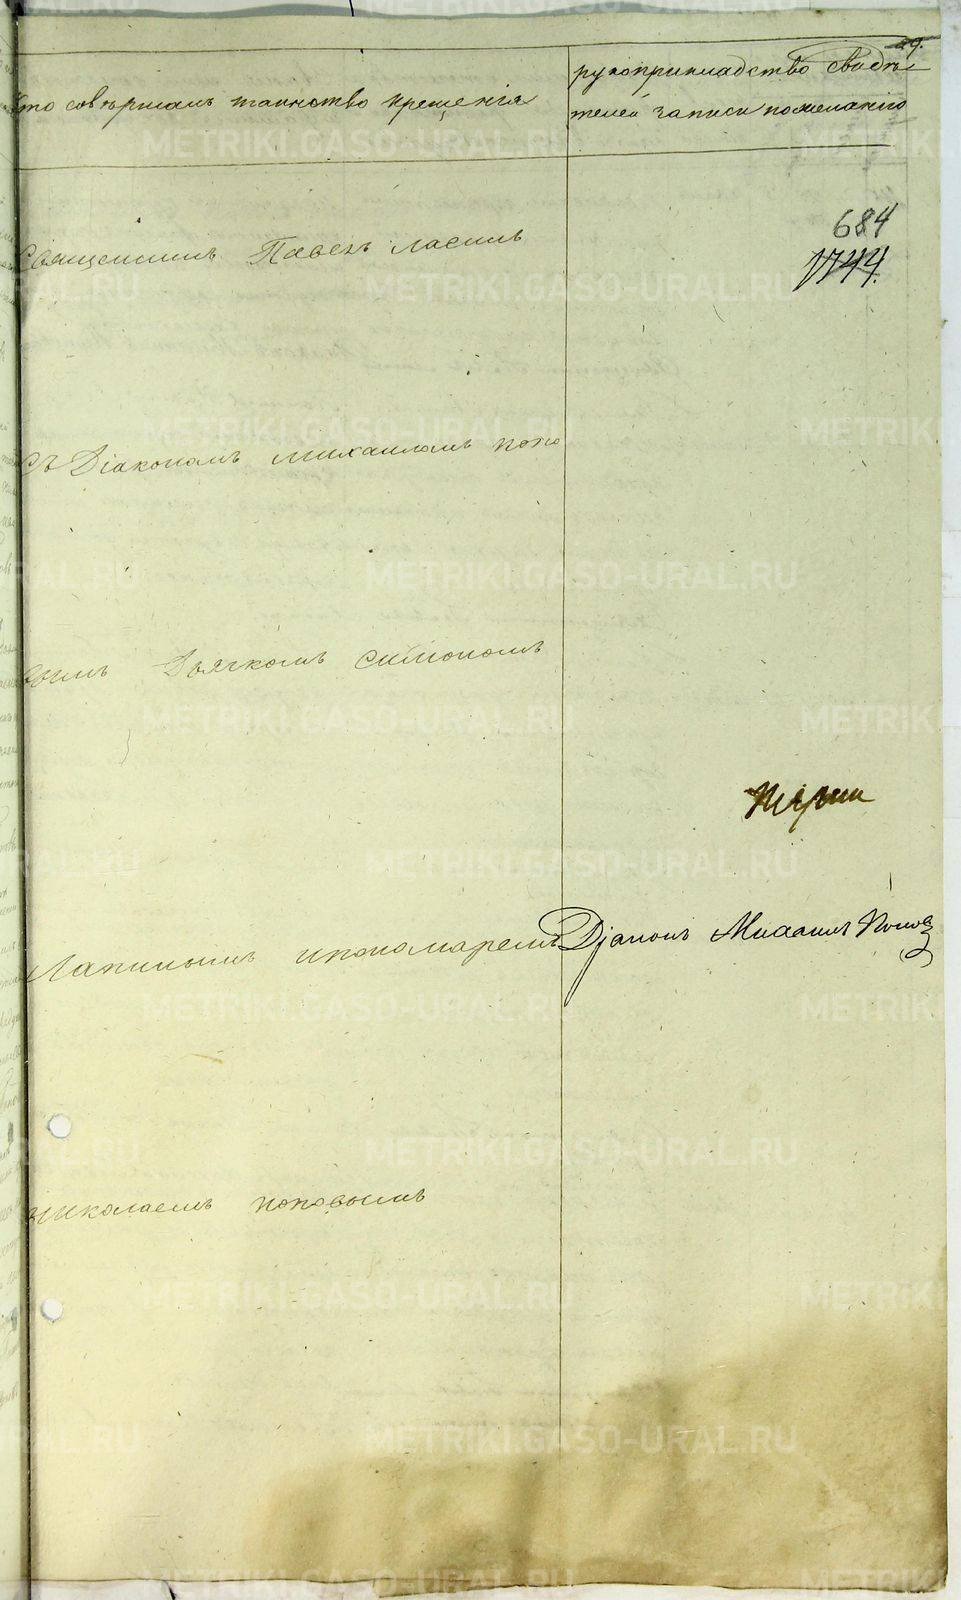 29.
кто совѣршалъ таинство крещенія
рукоприкладство свидѣ
телей записи пожеланію
684
1744.
Священникъ Павелъ
съ Діакономъ михаиломъ попо
вымъ Дьячкомъ симономъ
Лапинымъ ипономаремъ
Діаконъ Михаилъ Поповъ
николаемъ поповымъ
METRIKI.GASO-URAL.RU